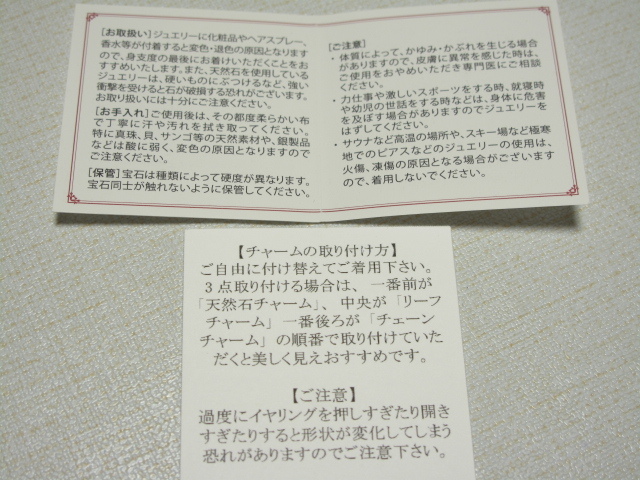 [お取扱い]ジュエリーに化粧品やヘアスプレー、
香水等が付着すると変色・退色の原因となります
ので、身支度の最後にお着けいただくことをお
すすめいたします。また、天然石を使用している
ジュエリーは、硬いものにぶつけるなど、強い
衝撃を受けると石が破損する恐れがございます。
お取り扱いには十分にご注意ください。
[お手入れ]ご使用後は、その都度柔らかい布
で丁寧に汗や汚れを拭き取ってください。
特に真珠、貝、サンゴ等の天然素材や、銀製品
などは酸に弱く、変色の原因となりますので
ご注意ください。
[保管]宝石は種類によって硬度が異なります。
宝石同士が触れないように保管してください。
[ご注意]
・体質によって、かゆみ・かぶれを生じる場合
がありますので、皮膚に異常を感じた時は、
ご使用をおやめいただき専門医にご相談
ください。
・力仕事や激しいスポーツをする時、就寝時
や幼児の世話をする時などは、身体に危害
を及ぼす場合がありますのでジュエリーを
はずしてください。
・サウナなど高温の場所や、スキー場など極寒
地でのピアスなどのジュエリーの使用は、
火傷、凍傷の原因となる場合がございます
ので、着用しないでください。
【チャームの取り付け方】
ご自由に付け替えてご着用下さい。
3点取り付ける場合は、一番前が
「天然石チャーム」、中央が「リーフ
チャーム」一番後ろが「チェーン
チャーム」の順番で取り付けていた
だくと美しく見えおすすめです。
【ご注意】
過度にイヤリングを押しすぎたり開き
すぎたりすると形状が変化してしまう
恐れがありますのでご注意下さい。